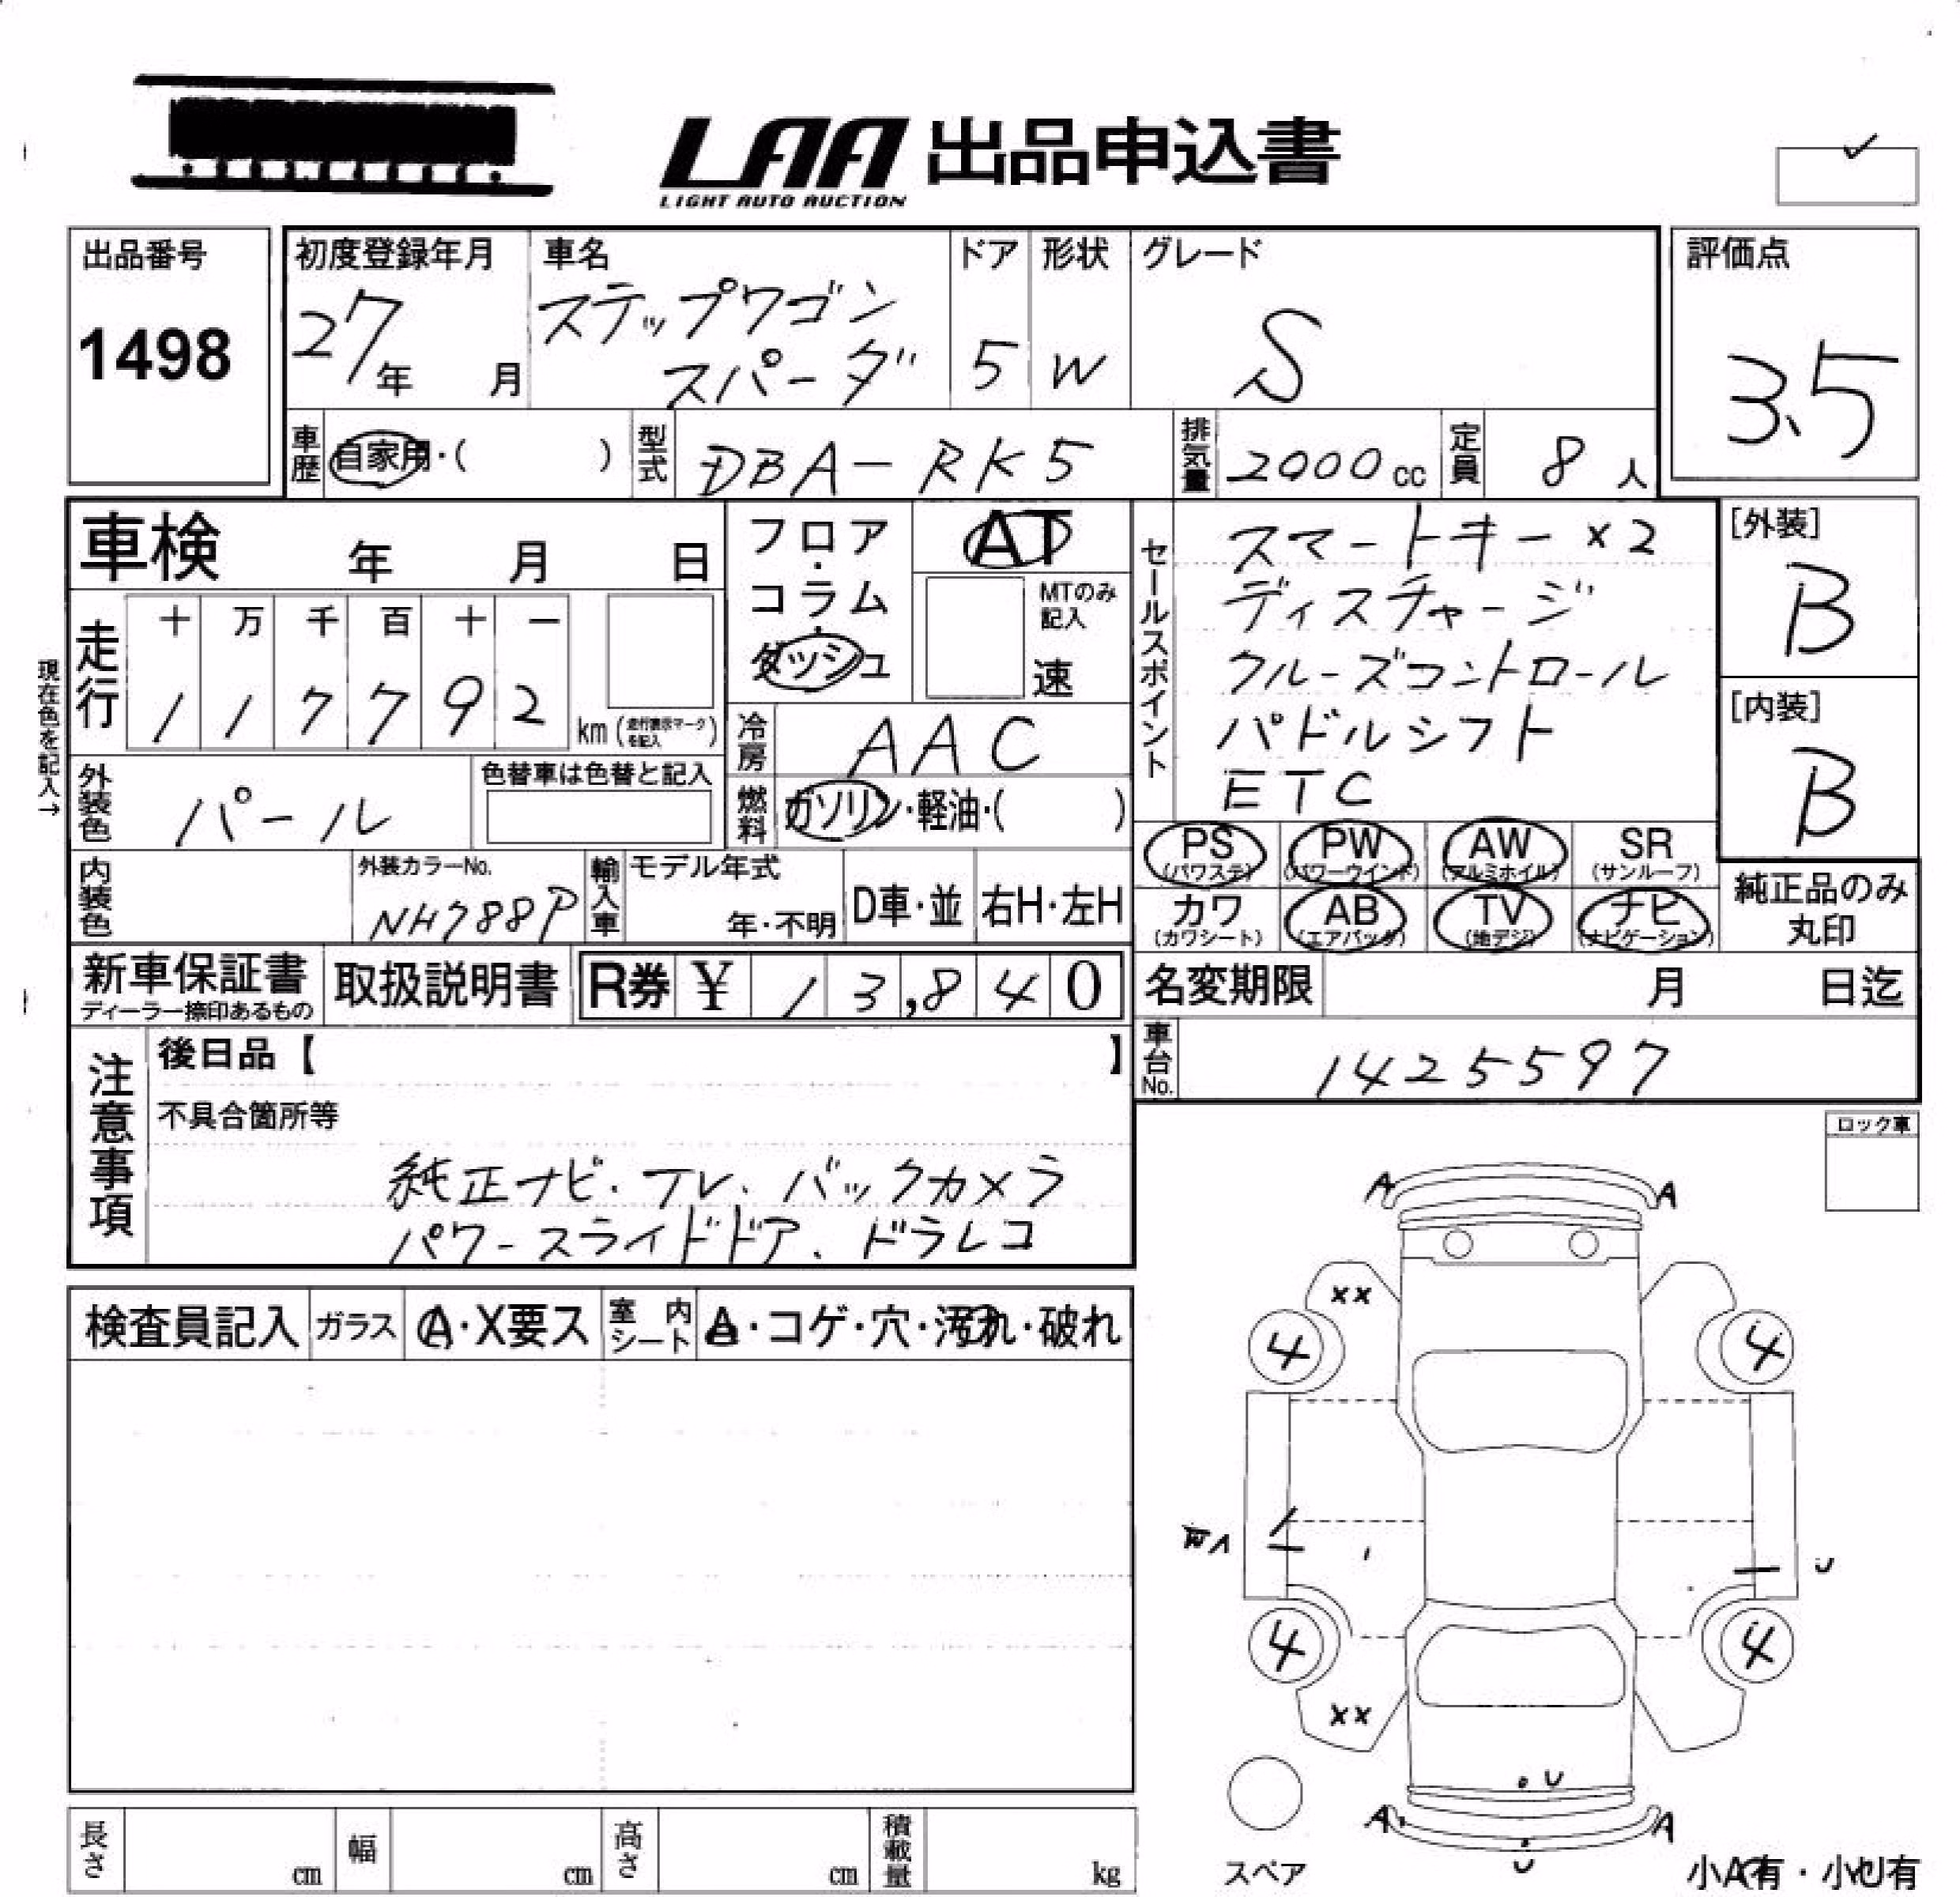 LAA 出品申込書
LIGHT AUTO AUCTION
出品番号
1498
初度登録年月
27年 月
車名
ステップワゴン
スパーダ
ドア
5
形状
W
グレード
S
評価点
3.5
車歴 自家用・( )
型式 DBA-RK5
排気量 2000cc
定員 8人
車検 年 月 日
フロア・
コラム・
ダッシュ
AT
MTのみ
記入
速
セールスポイント
スマートキー×2
ディスチャージ
クルーズコントロール
パドルシフト
ETC
[外装]
B
[内装]
B
現在色を記入→
走行
十 万 千 百 十 一
1 1 7 7 9 2
km(走行表示マークを記入)
冷房 AAC
外装色 パール
色替車は色替と記入
燃料 ガソリン・軽油・( )
PS (パワステ)
PW (パワーウインド)
AW (アルミホイル)
SR (サンルーフ)
カワ (カワシート)
AB (エアバッグ)
TV (地デジ)
ナビ (ナビゲーション)
純正品のみ
丸印
内装色
外装カラーNo.
NH788P
輸入車
モデル年式
年・不明
D車・並
右H・左H
新車保証書
ディーラー捺印あるもの
取扱説明書
R券 ¥ 13,840
名変期限 月 日迄
車台No. 1425597
注意事項
後日品【 】
不具合箇所等
純正ナビ.TV.バックカメラ
パワースライドドア.ドラレコ
ロック車
検査員記入
ガラス
A・X要ス
室内シート
A・コゲ・穴・汚れ・破れ
A A
XX
4 4
U
4 4
XX
U
A A
U
スペア
小A有・小U有
長さ cm
幅 cm
高さ cm
積載量 kg